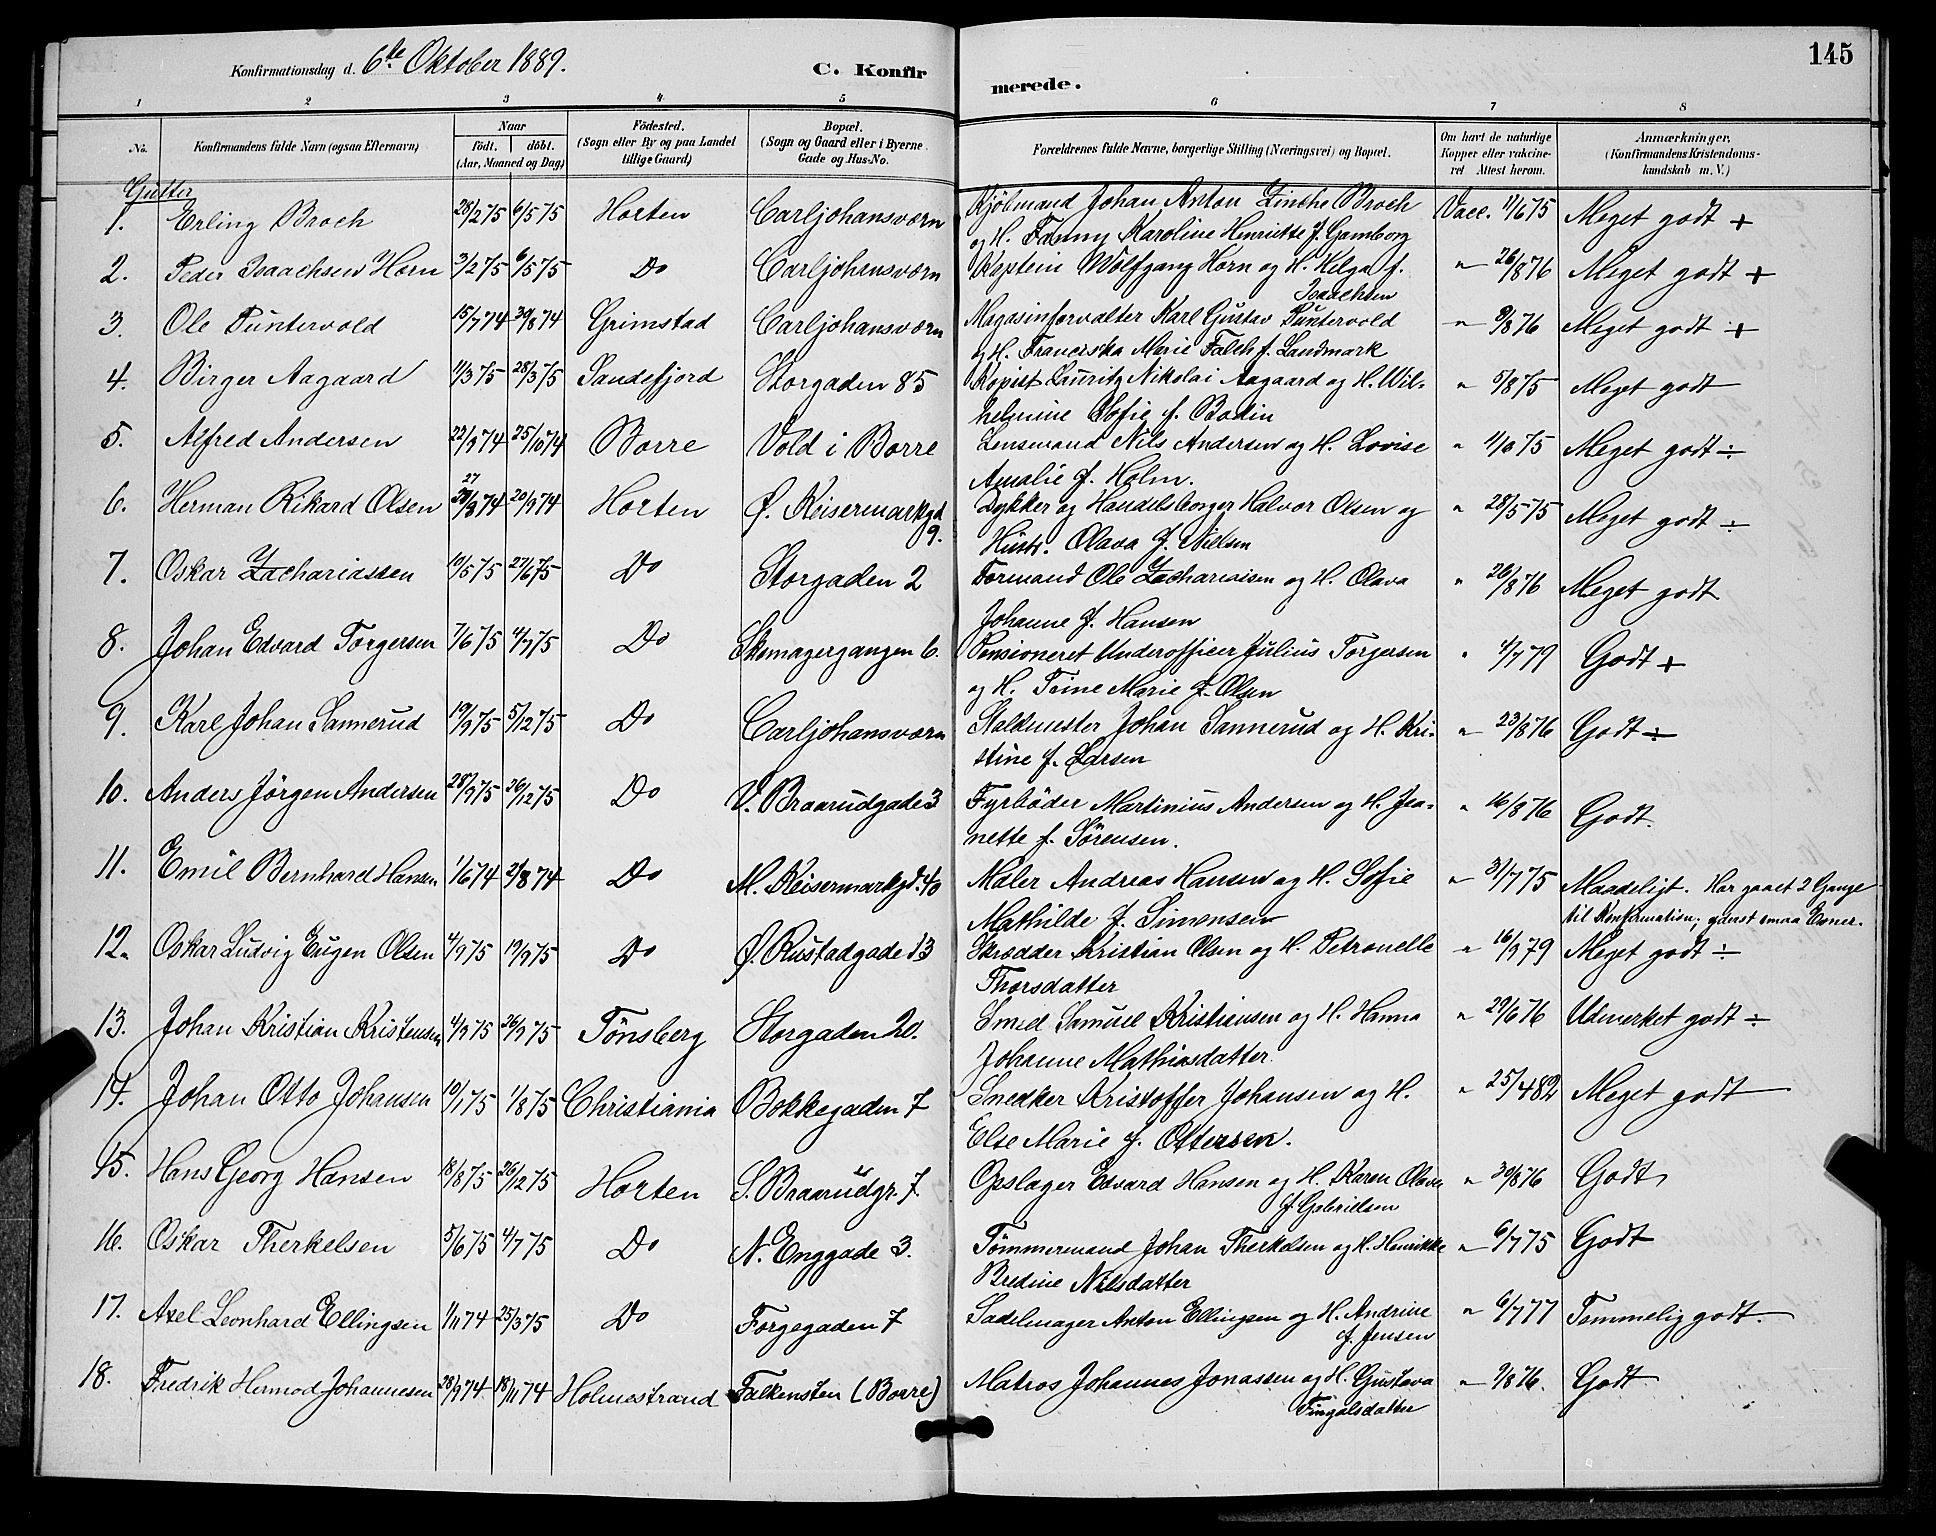 145
Konfirmationsdag d. 6te Oktober 1889. C. Konfir merede.
1 2 3 4 5 6 7 8
No. Konfirmandens fulde Navn (ogsaa Efternavn) Naar födt. döbt. (Aar, Maaned og Dag) Födested. (Sogn eller By og paa Landet tillige Gaard) Bopæl. (Sogn og Gaard eller i Byerne Gade og Hus-No. Forældrenes fulde Navne, borgerlige Stilling (Næringsvei) og Bopæl. Om havt de naturlige Kopper eller vakcineret. Attest herom. Anmærkninger, (Konfirmandens Kristendomskundskab m. V.)
Gutter
1. Erling Broch 28/2 75 6/5 75 Horten Carljohansværn Kjölmand Johan Anton Zinthe Broch Vacc. 11/6 75 Meget godt +
og H. Fanny Karoline Henriette f. Gamborg
2. Peder Isaachsen Horn 3/2 75 6/5 75 Do Carljohansværn Kaptein Wolfgang Horn og H. Helga f. " 26/8 76 Meget godt +
Isaachsen
3. Ole Puntervold 15/7 74 30/8 74 Grimstad Carljohansværn Magasinforvalter Karl Gustav Puntervold " 9/8 76 Meget godt +
og H. Franciska Marie Falch f. Landmark
4. Birger Aagaard 11/3 75 28/3 75 Sandefjord Storgaden 85 Kopist Lauritz Nikolai Aagaard og H. Wil- " 5/8 75 Meget godt
helmine Sofie f. Bodin
5. Alfred Andersen 22/9 74 25/10 74 Borre Vold i Borre Lensmand Nils Andersen og H. Lovise " 75 Meget godt ÷
Amalie f. Holm.
6. Herman Rikard Olsen 27/8 74 20/9 74 Horten Ø. Keisermarkgd. 9. Dykker og Handelsborger Halvor Olsen og " 28/5 75 Meget godt ÷
Hustr. Olava f. Nielsen
7. Oskar Zachariassen 10/5 75 27/6 75 Do Storgaden 2 Formand Ole Zachariaisen og H. Olava " 26/8 76 Meget godt
Johanne f. Hansen
8. Johan Edvard Torgersen 7/6 75 4/7 75 Do Skomagergangen 6. Pensioneret Underofficer Julius Torgersen " 4/7 79 Godt +
og H. Trine Marie f. Olsen
9. Karl Johan Sannerud 19/9 75 5/12 75 Do Carljohansværn Staldmester Johan Sannerud og H. Kri- " 23/8 76 Godt ÷
stine f. Larsen
10. Anders Jörgen Andersen 28/9 75 26/12 75 Do V. Braarudgade 3 Fyrböder Martinius Andersen og H. Jea- " 16/8 76 Godt.
nette f. Sörensen.
11. Emil Bernhard Hansen 1/6 74 2/8 74 Do M. Keisermarkgd. 40 Maler Andreas Hansen og H. Sofie " 31/7 75 Maadeligt. Har gaaet 2 Gange
Mathilde f. Simensen til Konfirmation; yderst smaa Evner.
12. Oskar Ludvig Eugen Olsen 4/9 75 19/9 75 Do Ø. Rustadgade 13 Skrædder Kristian Olsen og H. Petronelle " 16/9 79 Meget godt ÷
Thorsdatter
13. Johan Kristian Kristensen 4/9 75 26/9 75 Tönsberg Storgaden 20. Smed Samuel Kristiansen og H. Hanna " 29/6 76 Udmerket godt ÷
Johanne Mathiasdatter.
14. Johan Otto Johansen 10/1 75 1/8 75 Christiania Bokkegaden 7 Snedker Kristoffer Johansen og H. " 25/4 82 Meget godt
Else Marie f. Ottersen.
15. Hans Georg Hansen 18/8 75 26/12 75 Horten S. Braarudgr. 7. Opslager Edvard Hansen og H. Karen Olava " 30/8 76 Godt
f. Gabrielsen
16. Oskar Therkelsen 5/6 75 4/7 75 Do N. Enggade 3. Tömmermand Johan Therkelsen og H. Henrikke " 6/7 75 Godt
Bredine Nilsdatter
17. Axel Leonhard Ellingsen 1/11 74 25/3 75 Do Torgegaden 7 Sadelmager Anton Ellingsen og H. Andrine " 6/7 77 Temmelig godt.
f. Jensen
18. Fredrik Hermod Johannesen 28/9 74 18/11 74 Holmestrand Falkensten (Borre) Matros Johannes Jonassen og H. Gustava " 9/8 76. Godt
Tingalsdatter